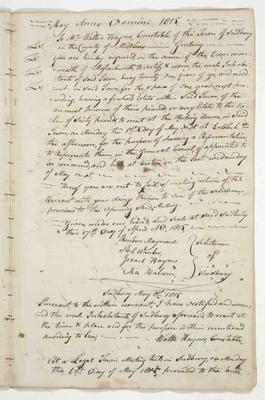 May Anno Domini 1815
To Mr. Walter Haynes Constable of the Town of Sudbury
in the County of Middlesex Greeting
You are hereby required in the name of the Common
wealth of Massachusetts to notify & warn the male Inhabi
tants of Said Town, being twenty one years of age, and resi
dent in said Town for the Space of One year next pre
ceeding, having a freehold estate within Said Town of the
annual Income of three pounds, or any Estate to the va
lue of Sixty pounds to meet at the Meeting House in Said
Town, on Monday the day of May next at o'Clock in
the afternoon, for the purpose of choosing a Representative
to represent them in the General Court, appointed to
be convened and at Boston on the last wednesday
of May next
Hereof you are not to fail & make return of this
Warrant with your doings thereon to one of the Selectmen
previous to the opening Said Meeting
Given under our hands and Seals at Said Sudbury
this 17th Day of April AD. 1815
Reuben Maynard
Israel Haynes
Selectmen
of
Sudbury
Sudbury May 1815
Pursuant to the within warrant, I have notified and warn
ed the male Inhabitants of Sudbury aforesaid to meet at
the time & place and for the purpose within mentioned
according to law
Walter Haynes Constable
At a Legal Town Meeting held in Sudbury, on Monday
the Day of May 1815 provided to the